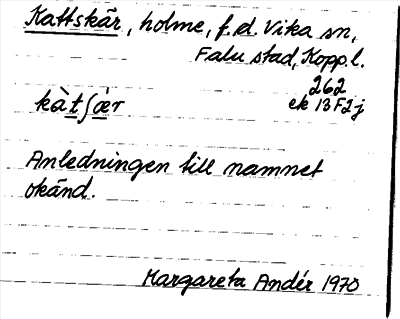 Kattskär, holme, f.d. Vika sn,
Falu stad, Kopp.l.
262
kàtʃæ̀r ek 13 F2j
Anledningen till namnet
okänd.
Margareta Andér 1970